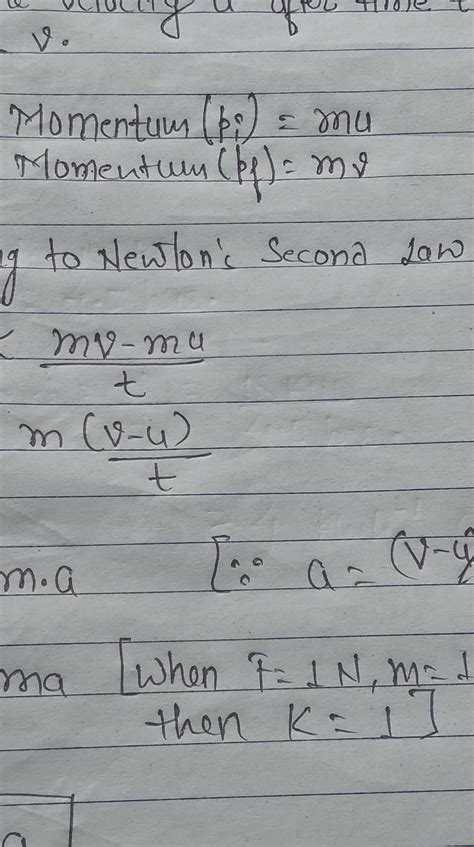 velocity u after time t
v.
Momentum (pi) = mu
Momentum (pf) = mv
g to Newton's Second Law
mv-mu
t
m (v-u)
t
m.a [∵ a = (v-u)
ma [When F = 1N, m = 1
then K = 1]
a